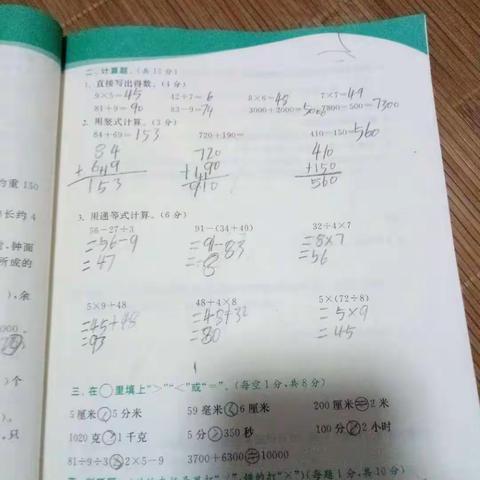 二、计算题。(共13分)
1. 直接写出得数。(4分)
9×5=45 42÷7=6 8×6=48 7×7=49
81+9=90 83-9=74 3000+2000=5000 7800-500=7300
2. 用竖式计算。(3分)
84+69=153 720+190= 410-150=560
84 720 410
+69 +190 +150
153 910 560
3. 用递等式计算。(6分)
56-27÷3 91-(34+49) 32÷4×7
=56-9 =91-83 =8×7
=47 =8 =56
5×9+48 48+4×8 5×(72÷8)
=45+48 =48+32 =5×9
=93 =80 =45
三、在○里填上“>”“<”或“=”。(每空1分,共8分)
5厘米 5分米 59毫米<6厘米 200厘米=2米
1020克 1千克 5分<350秒 100分 2小时
81÷9÷3 2×5-9 3700+6300=10000
均重150
长约4
,钟面
所成的
),余
000。
)个
)。
,只